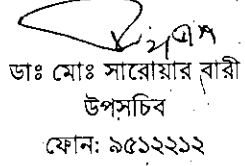 ডাঃ মোঃ সারোয়ার বারী
উপসচিব
ফোন: ৯৫১২২১২